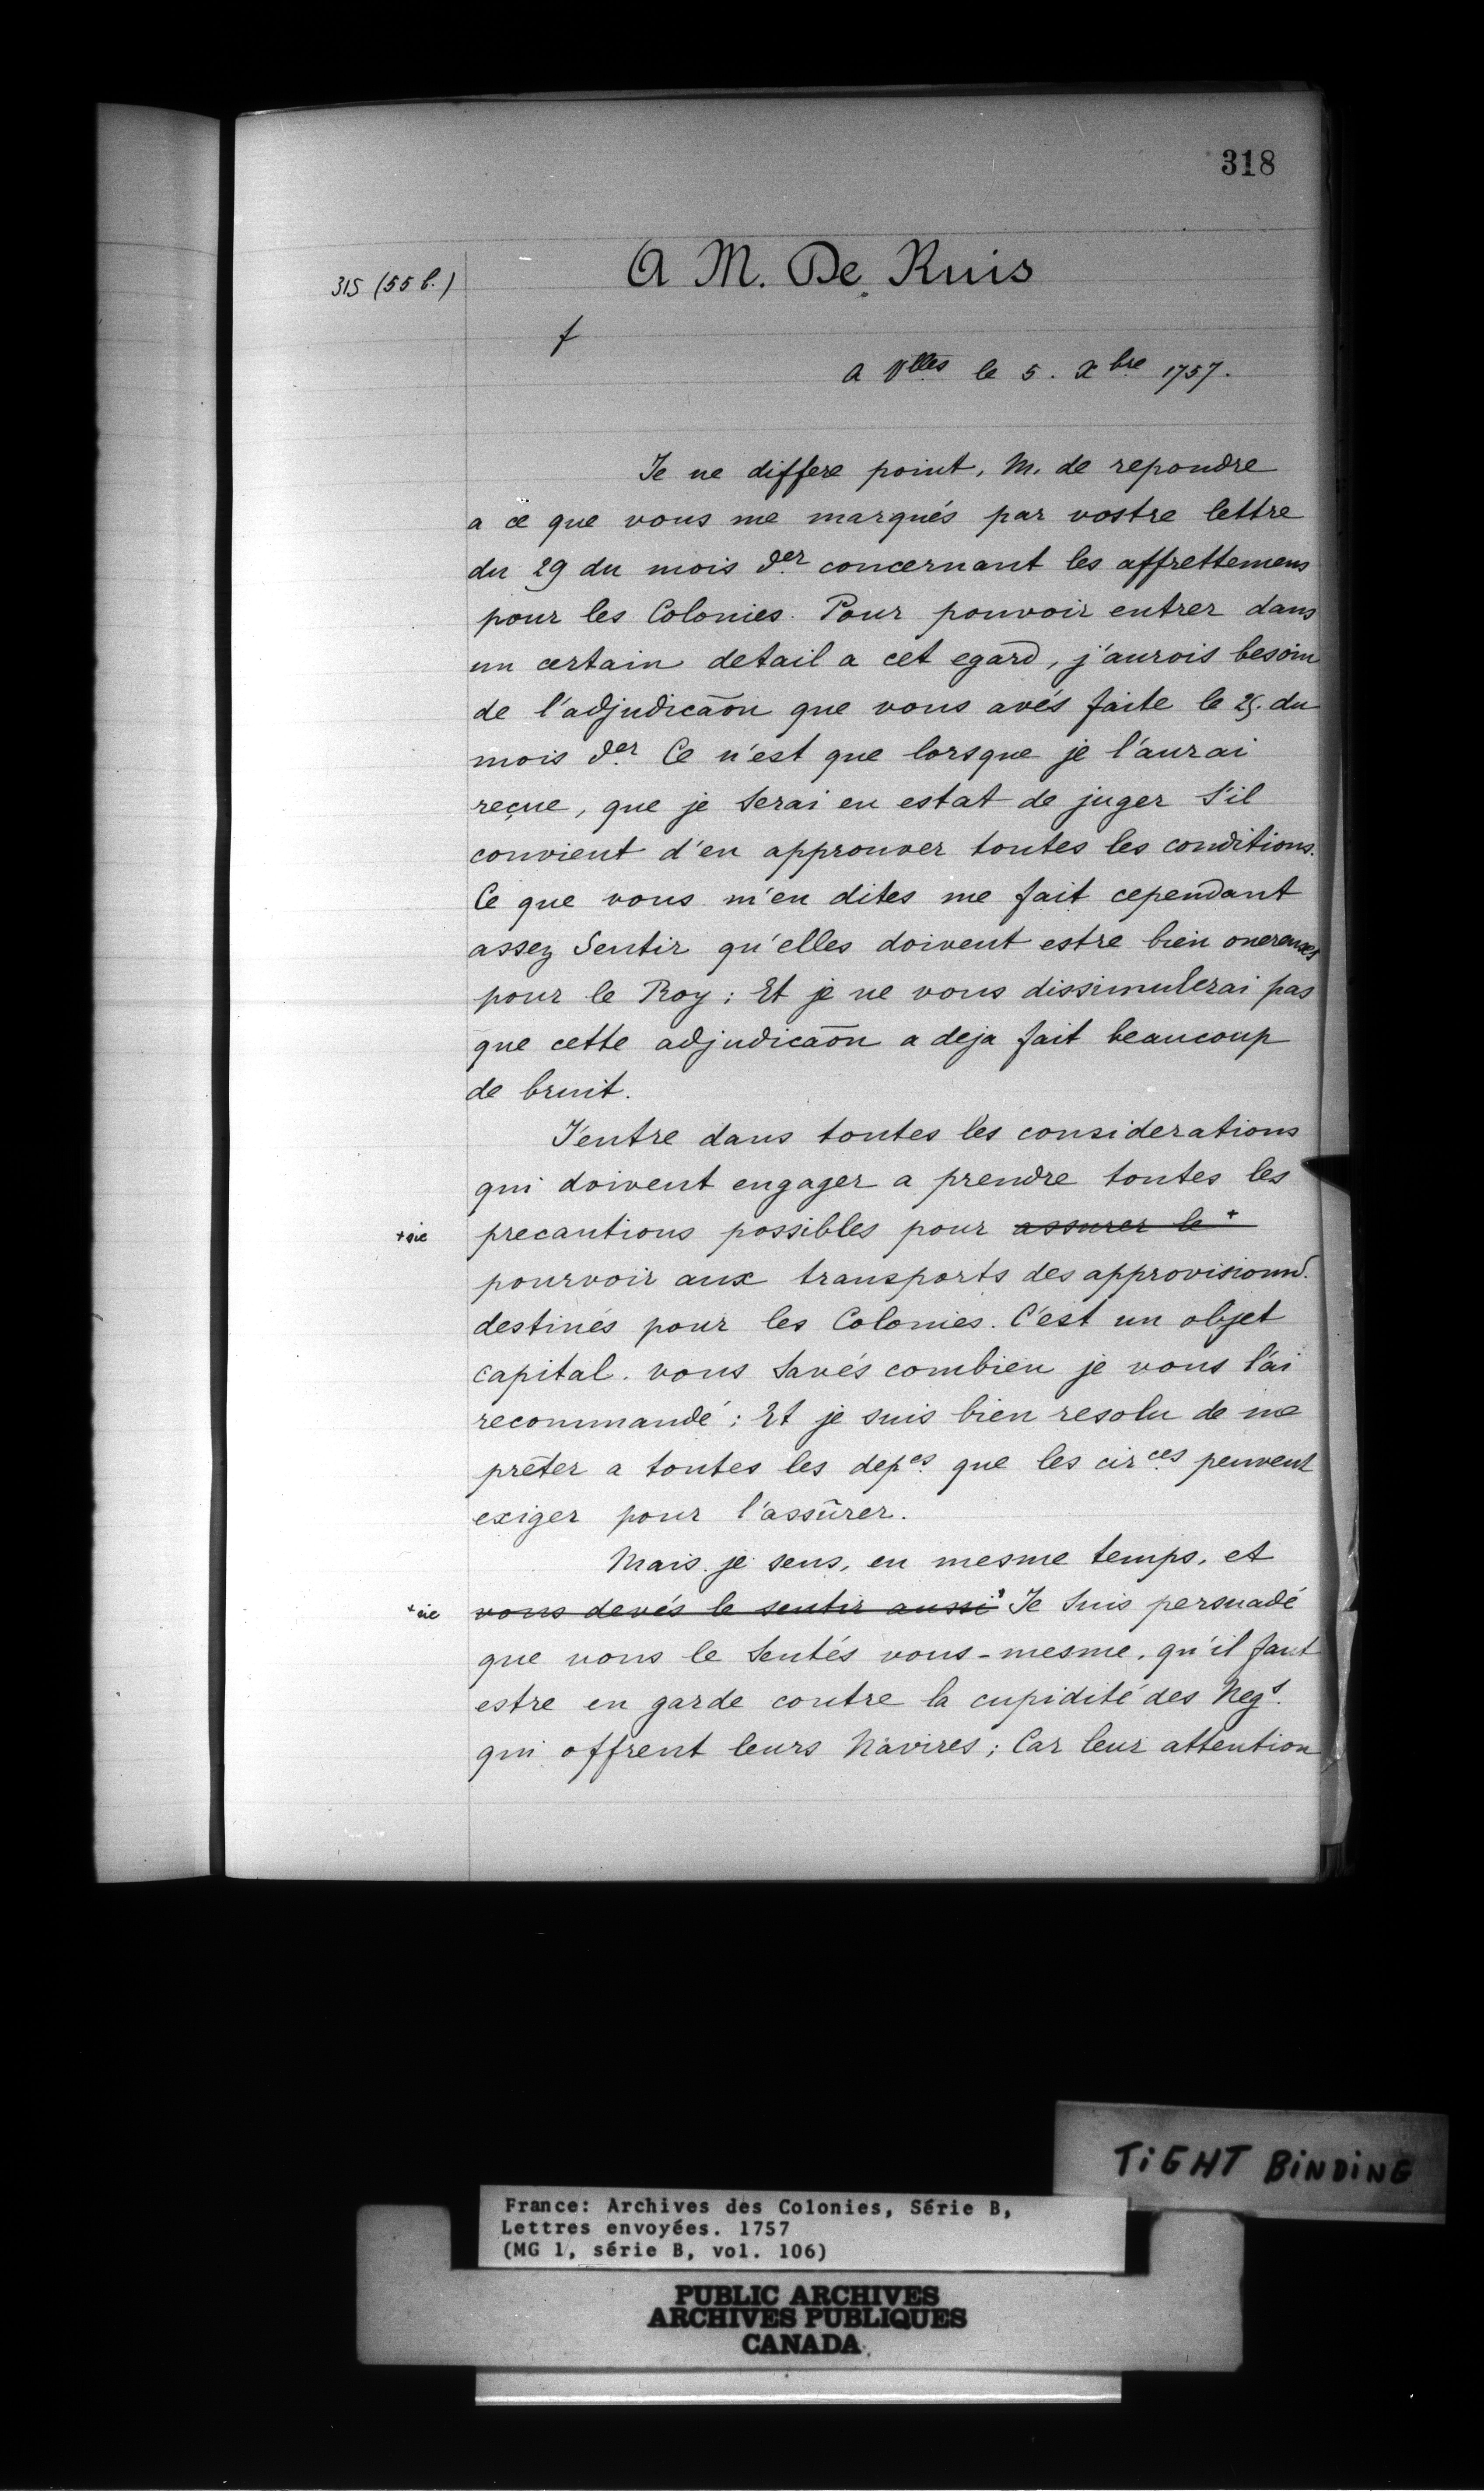 318
315 (55 b.)
A M. De Ruis
f
A Vlles le 5. Xbre 1757.
Je ne differe point, M. de repondre
a ce que vous me marqués par vostre lettre
du 29 du mois der concernant les affrettemens
pour les Colonies. Pour pouvoir entrer dans
un certain detail a cet egard, j'aurois besoin
de l'adjudicaõn que vous avés faite le 25. du
mois der Ce n'est que lorsque je l'aurai
reçue, que je serai en estat de juger s'il
convient d'en approuver toutes les conditions.
Ce que vous m'en dites me fait cependant
assez Sentir qu'elles doivent estre bien onereuses
pour le Roy; Et je ne vous dissimulerai pas
que cette adjudicaõn a deja fait beaucoup
de bruit.
J'entre dans toutes les considerations
qui doivent engager a prendre toutes les
+sic precautions possibles pour assurer le +
pourvoir aux transports des approvisionnd.
destinés pour les Colonies. C'est un objet
capital. vous savés combien je vous l'ai
recommandé; Et je suis bien resolu de me
prêter a toutes les depes. que les circes peuvent
exiger pour l'assûrer.
Mais je sens, en mesme temps, et
+sic vous devés le sentir aussi+ Je suis persuadé
que vous le sentés vous-mesme, qu'il faut
estre en garde contre la cupidité des Negs.
qui offrent leurs Navires; Car leur attention
TIGHT BINDING
France: Archives des Colonies, Série B,
Lettres envoyées. 1757
(MG 1, série B, vol. 106)
PUBLIC ARCHIVES
ARCHIVES PUBLIQUES
CANADA